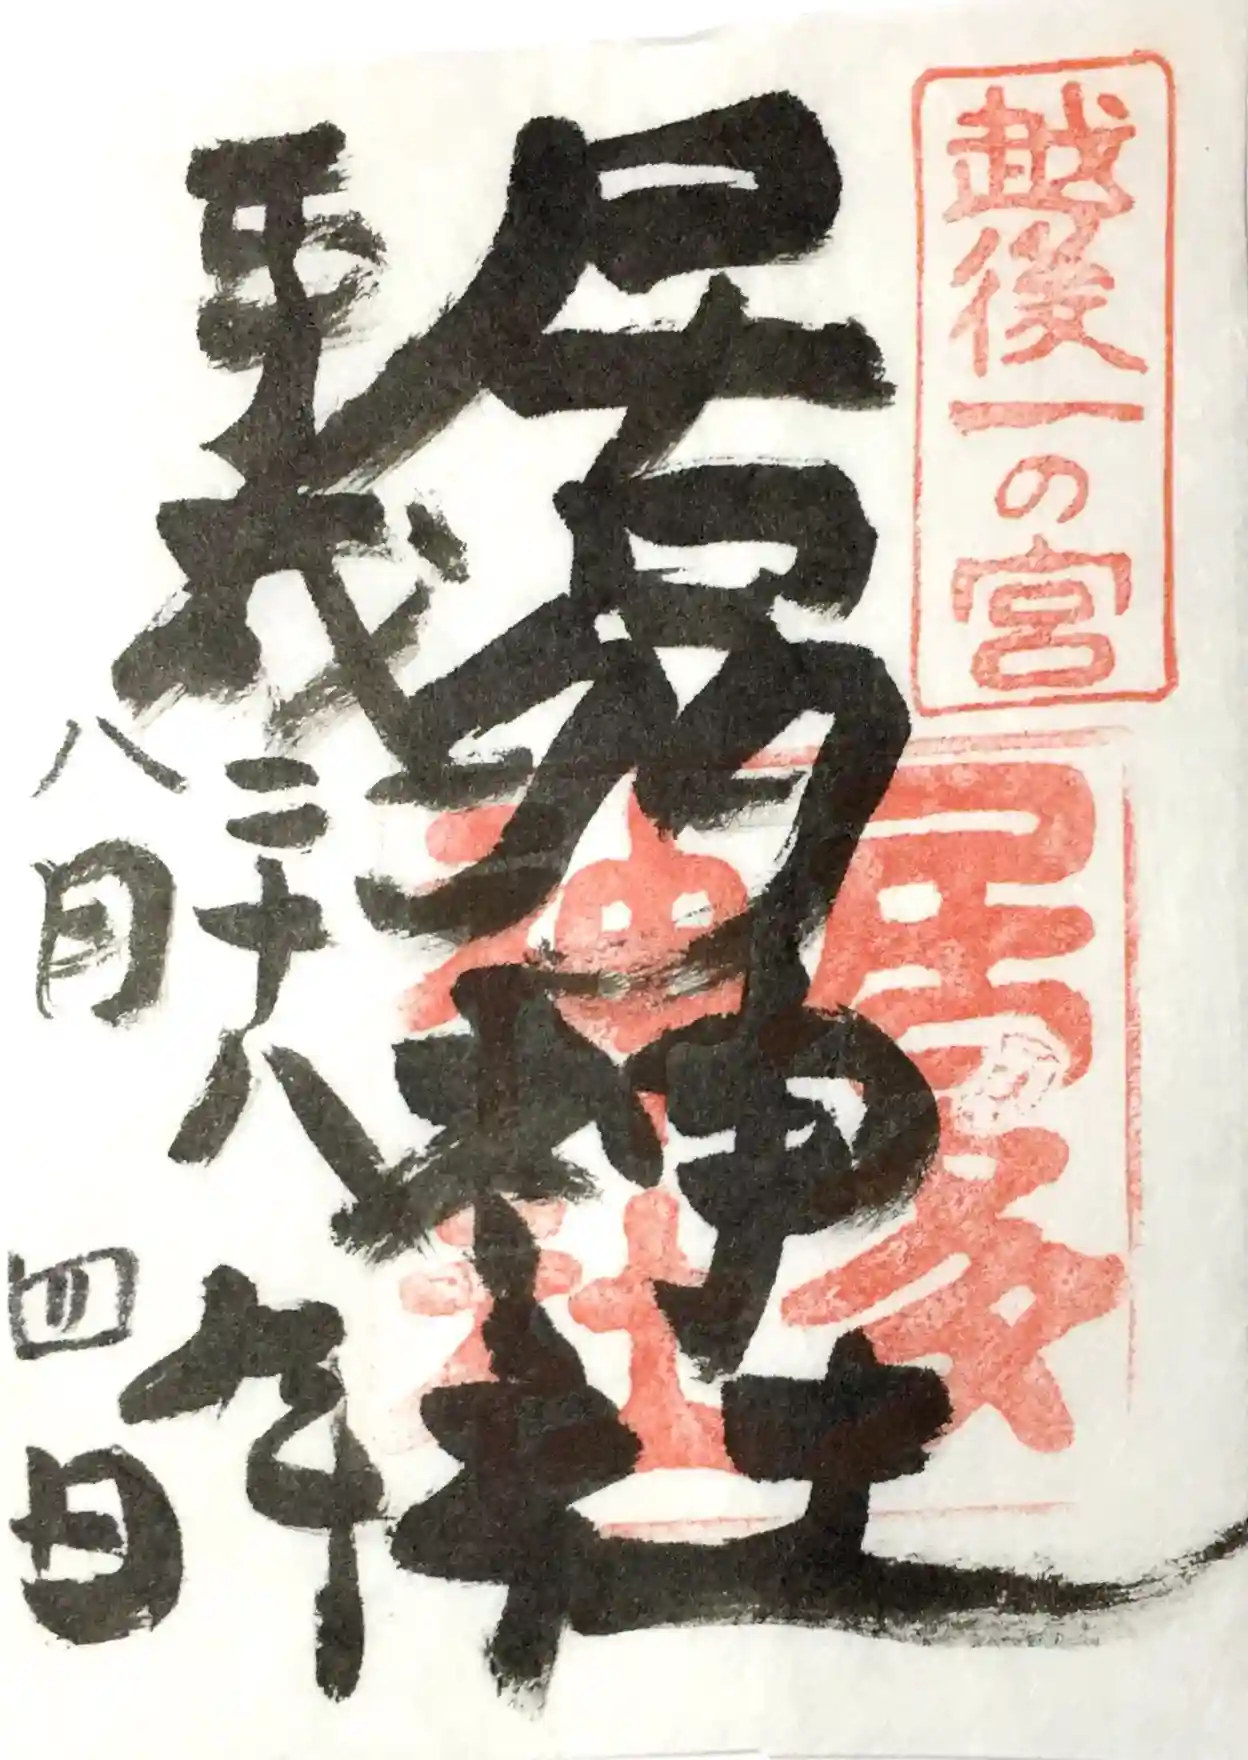 越後一の宮
居多神社
居多
神社
平成二十八年
八月四日